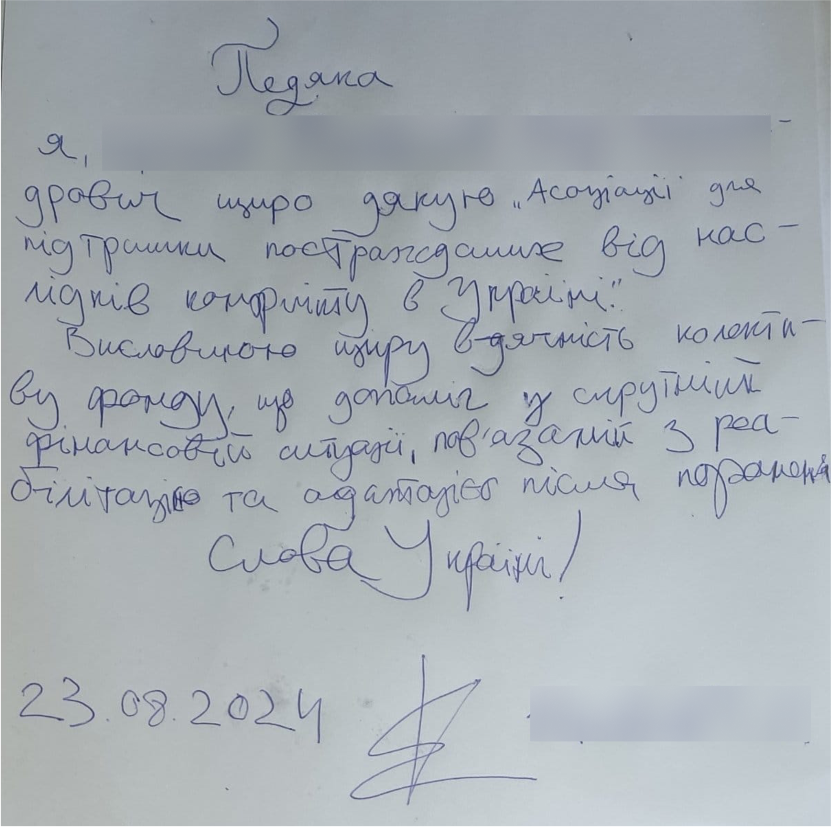 Подяка
Я, -
дрович щиро дякую „Асоціації для
підтримки постраждалих від нас-
лідків конфлікту в Україні".
Висловлюю щиру вдячність колекти-
ву фонду, що допоміг у скрутній
фінансовій ситуації, пов'язаній з реа-
білітацією та адаптацією після поранення
Слава Україні!
23.08.2024